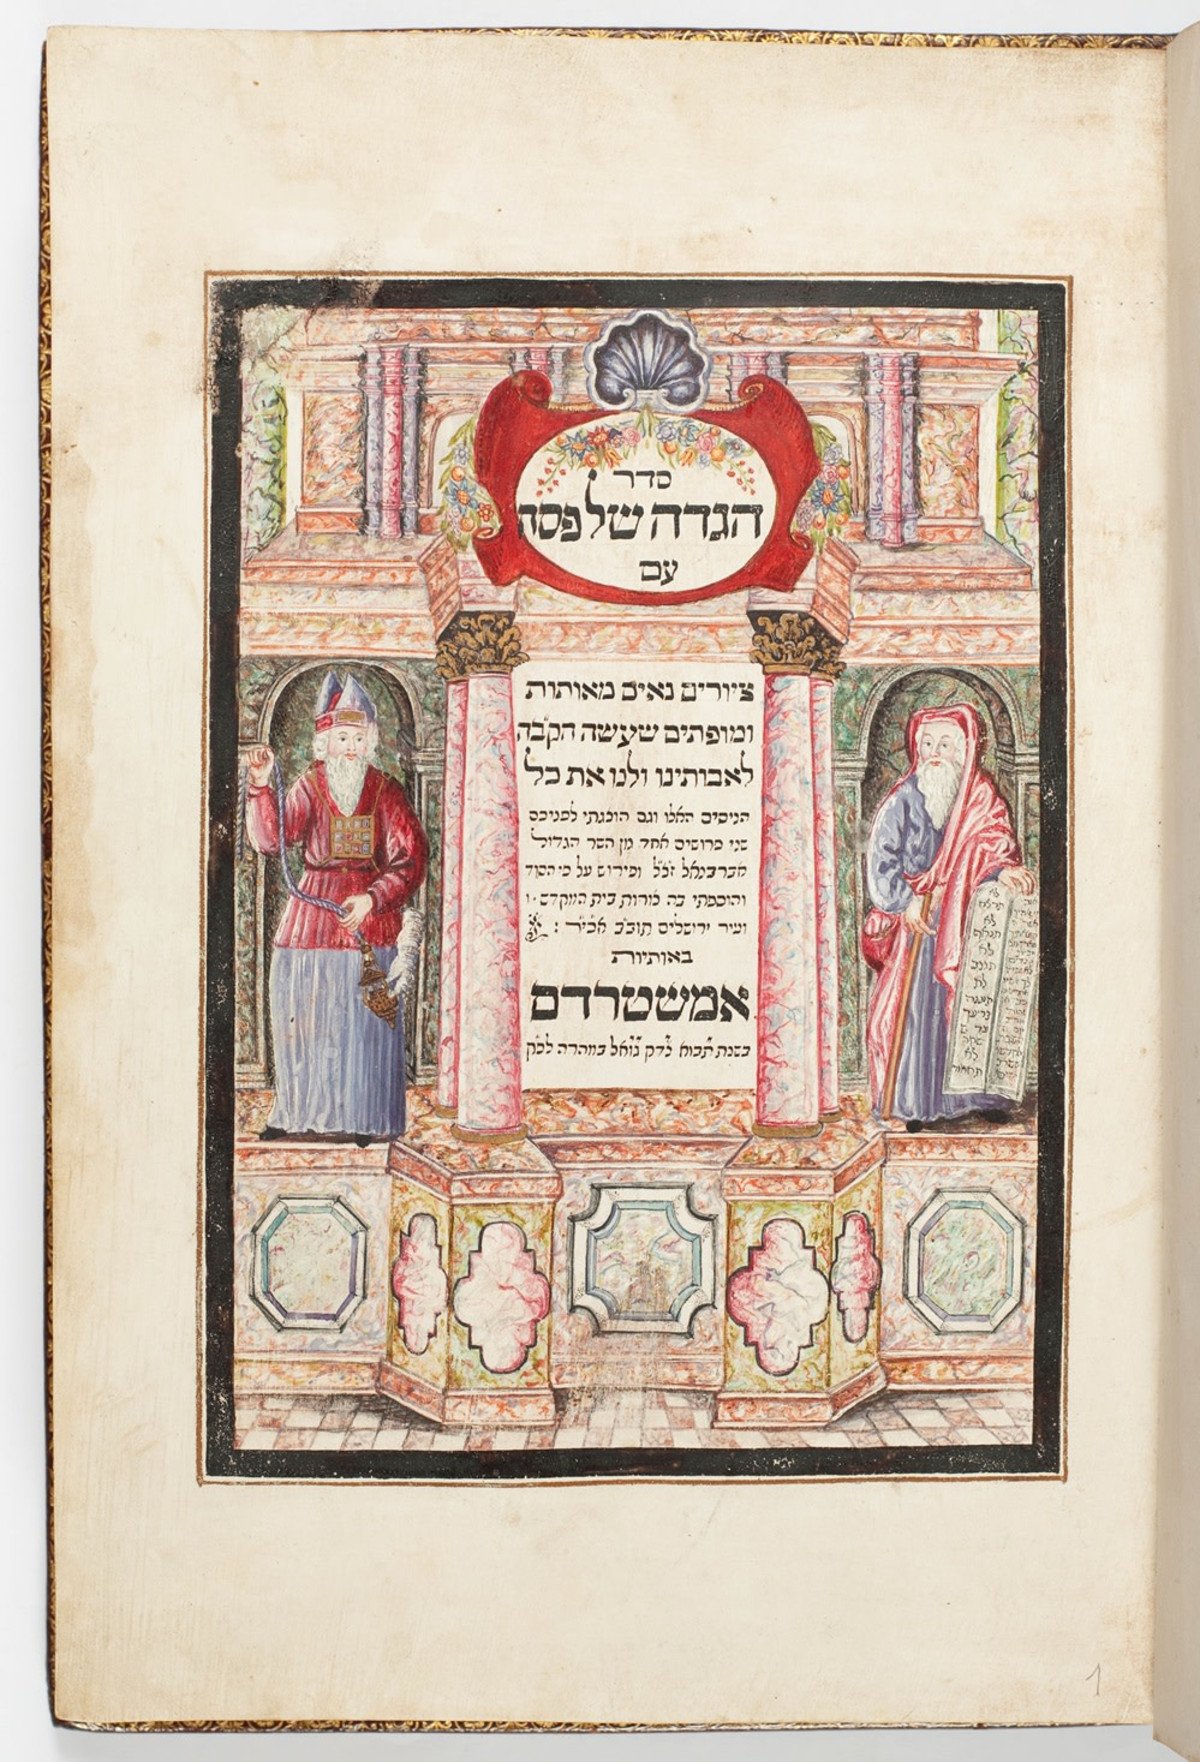 סדר
הגדה של פסח
עם
ציורים נאים מאותות
ומופתים שעשה הקב״ה
לאבותינו ולנו את כל
הניסים האלו וגם הוצגתי לפניכם
שני פרושים אחד מן השר הגדול
אברבנאל זצ״ל ופירוש על פי הסוד
והוספתי בה צורות בית המקדש ו
ועיר ירושלים תוב״ב אכי״ר :
באותיות
אמשטרדם
בשנת תבוא צדק גואל במהרה לפ״ק
לא
תרצח
לא
תנאף
לא
לא
1